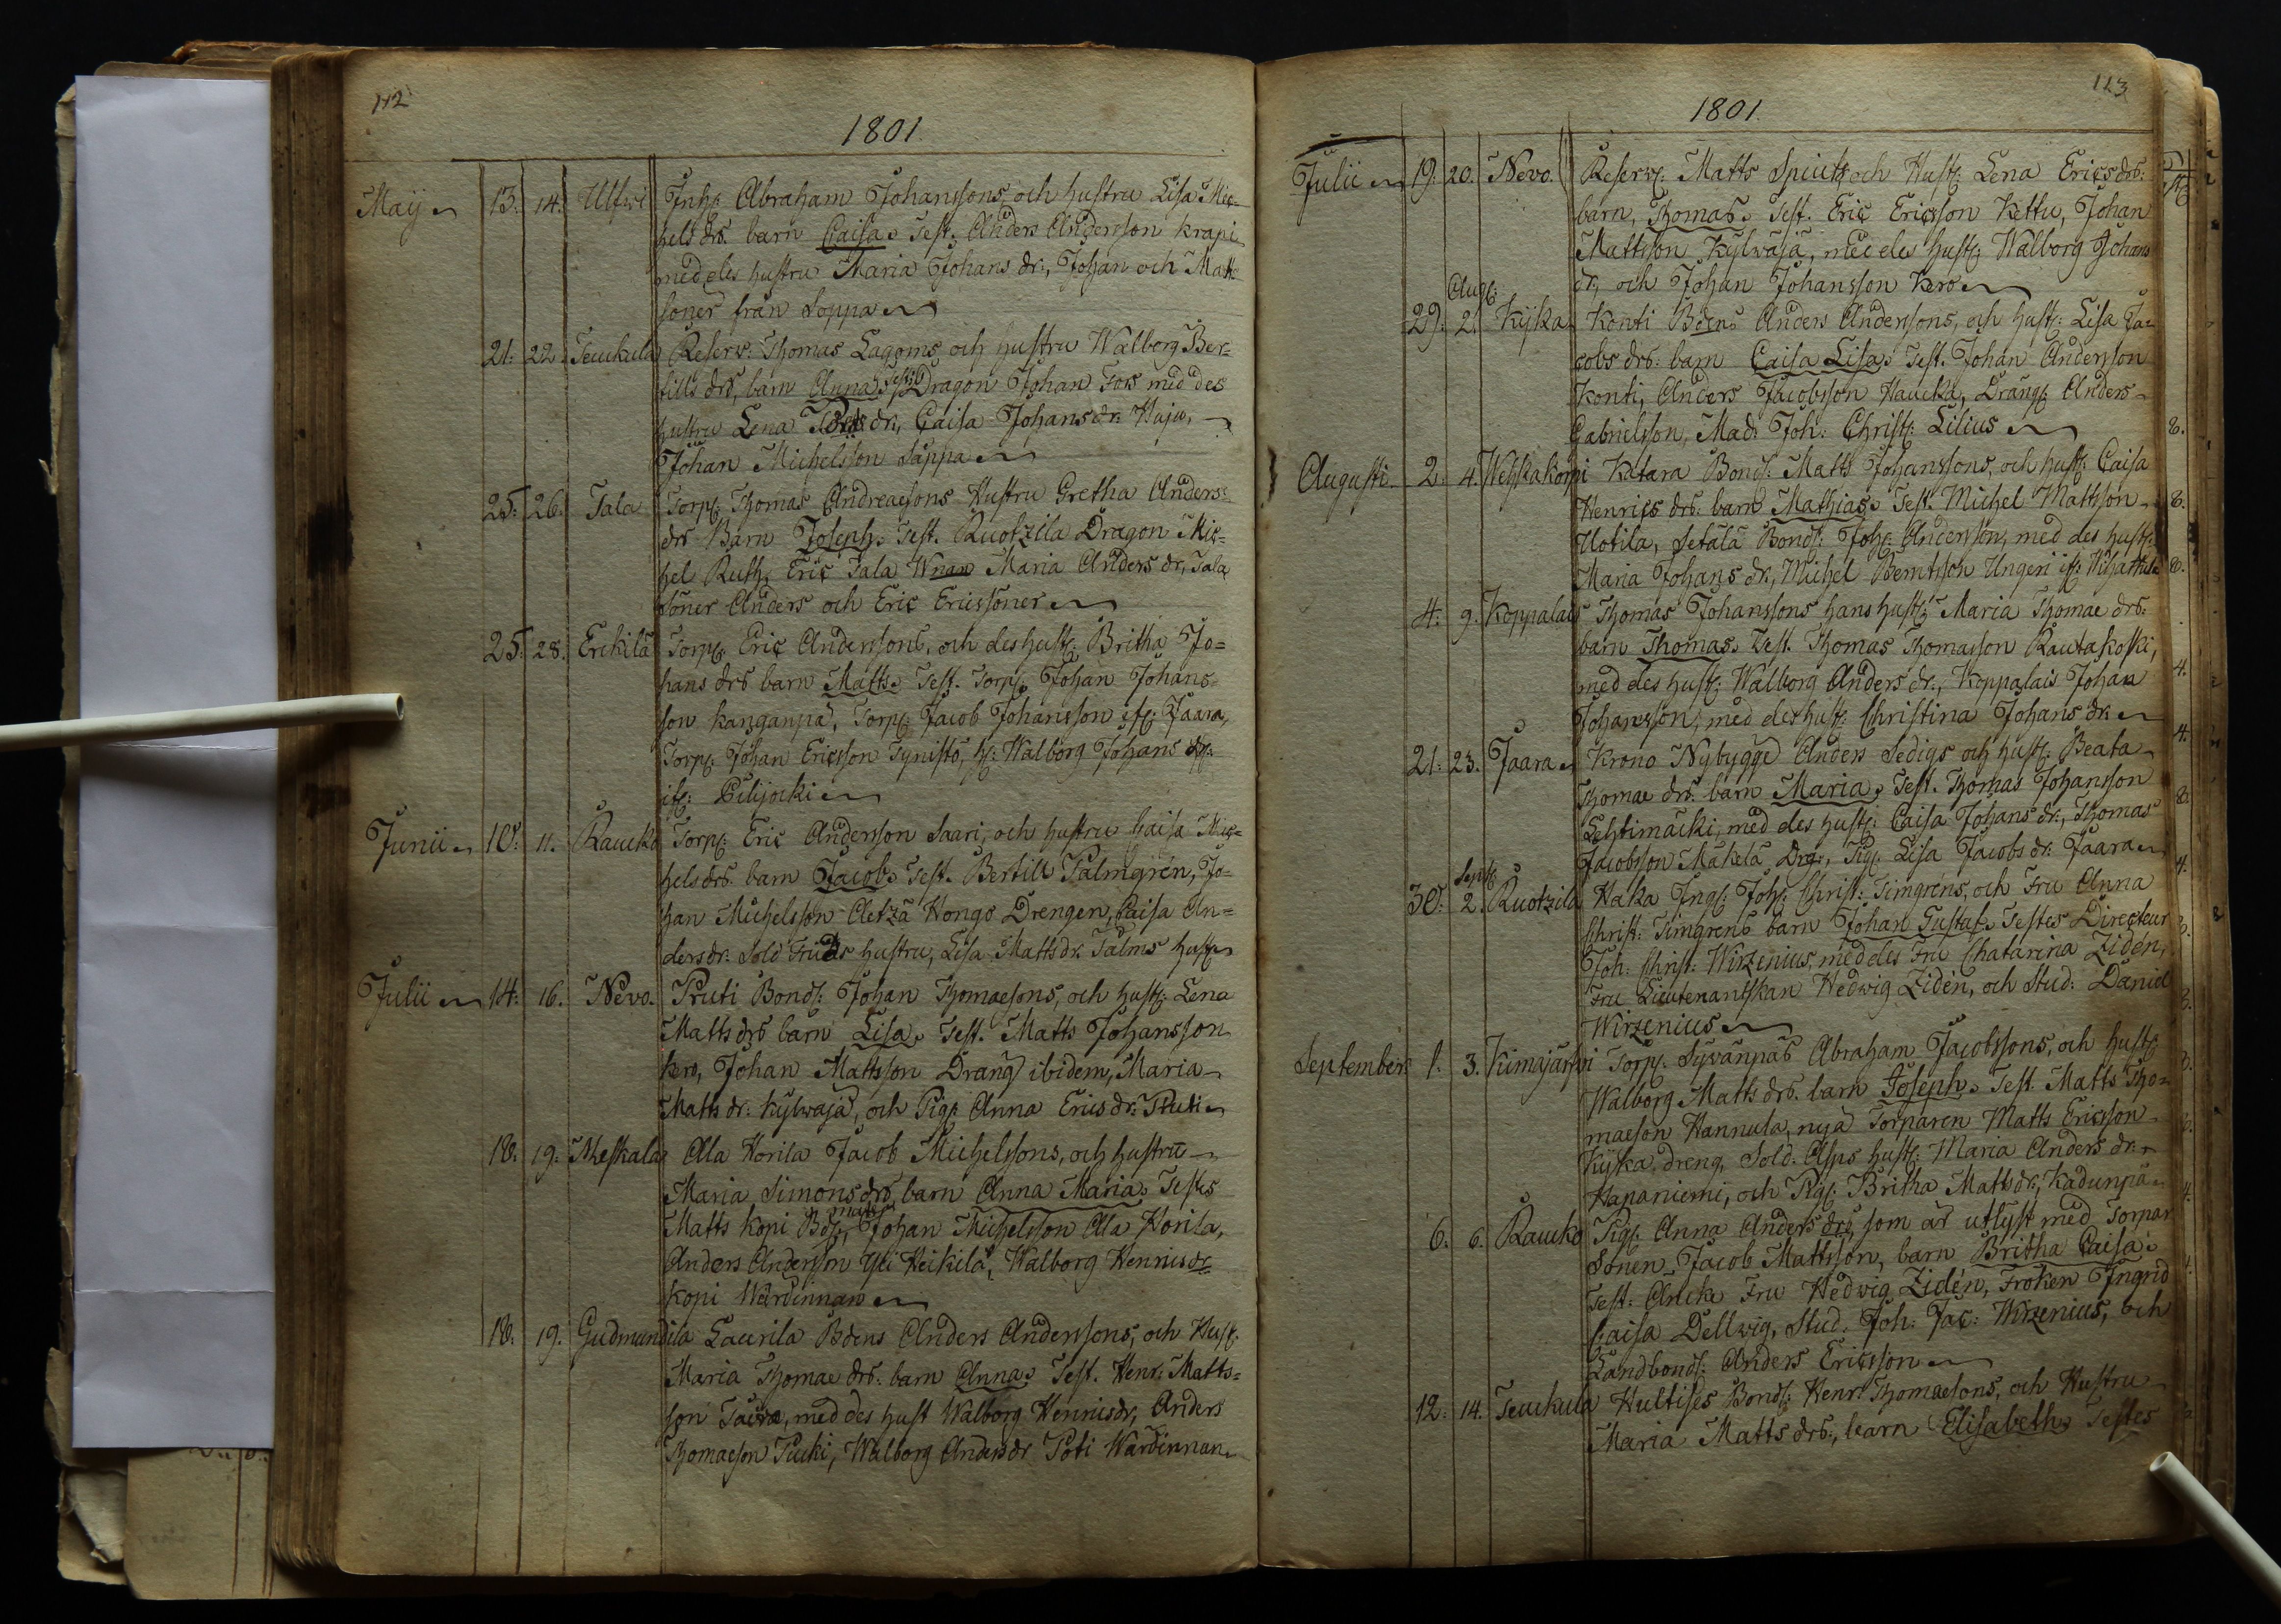 112
1801.
Maÿ 13. 14. Ulfwi Inh: Abraham Johanssons, och hustru Lisa Mic=
hels drs. barn Caisa. Test. Anders Andersson Krapi
med des hustru Maria Johans dr., Johan och Matts
söner från Soppa
21. 22. Teuckula Reserv: Thomas Lagoms, och hustru Walborg Ber=
tills drs, barn Anna. Testes Dragon Johan Fors med des
hustru Lena dr., Caisa Johans dr. Huju,
Johan Michelsson Sappa
25. 26. Tala Torp: Thomas Andreaesons Hustru Gretha Anders
drs Barn Joseph. Test. Ruotzila Dragon Mic=
hel Ruth, Eric Tala Wnan Maria Anders dr, Tala
söner Anders och Eric Ericssöner
25. 28. Erckilä Torp: Eric Anderssons, och des hust: Britha Jo=
hans drs barn Matts. Test. Torp: Johan Johans=
son Kanganpä, Torp: Jacob Johansson if: Jaara,
Torp: Johan Ericsson Tynistö, h: Walborg Johans dr.
if: Pilijocki
Junii 10. 11. Raucko Torp: Eric Andersson Saari, och hustru Caisa Mic=
hels drs. barn Jacob. Test. Bertill Palmgrén, Jo=
han Michelsson Aetzä Hongo Drengen, Caisa An=
dersdr. Sold Frids hustru, Lisa Mattsdr. Palms hust
Julii 14. 16. Nevo. Pruti Bond: Johan Thomaesons, och hust: Lena
Matts drs barn Lisa. Test. Matts Johansson
Kero, Johan Mattsson Dräng ibidem, Maria
Matts dr. Kylwäjä, och Pig: Anna Erics dr. Pruti
18. 19. Meskala Ala Horila Jacob Michelssons, och hustru
Maria Simons drs, barn Anna Maria. Testes
Matts Kopi Bds, Johan Michelsson Ala Horila,
Anders Andersson Yli Heikilä, Walborg Henricsdr
Kopi Wärdinnan
18. 19. Gudmundila Laurila Bdens Anders Anderssons, och Hust.
Maria Thomae drs. barn Anna. Test. Henr: Matts=
son, med des hust Walborg Henricsdr, Anders
Thomaeson Pucki, Walborg Andersdr Poti Wärdinnan
113
1801.
Julii 19. 20. Nevo. Reserv: Matts Spiuts och Hust: Lena Erics drs.
barn, Thomas. Test. Eric Ericsson Kettu, Johan
Mattsson Kylwäjä, med des hust: Walborg Johans
dr, och Johan Johansson Kero
Aug:
29. 2. Kÿka Konti Bdens Anders Anderssons, och hust: Lisa Ja=
cobs drs. barn Caisa Lisa. Test. Johan Andersson
Konti, Anders Jacobsson Haucka, Dräng: Anders
Gabrielsson, Mad: Joh: Christ: Lilius
Augusti 2. 4. Wehkakorpi Katara Bond: Matts Johanssons, och hust: Caisa
Henrics drs. barn Mathias. Test. Michel Mattsson
Uotila, Setälä Bond: Joh: Andersson, med des hust:
Maria Johans dr., Michel Berntsson Ungeri if: Wihattula
4. 9. Koppalais Thomas Johanssons hans hust: Maria Thomae drs.
barn Thomas. Test. Thomas Thomasson Rautakoski,
med des hust: Walborg Anders dr., Koppalais Johan
Johansson, med des hust: Christina Johans dr.
21. 23. Jaara Krono Nybygge Anders Sedigs och hust: Beata
Thomae drs. barn Maria. Test. Thomas Johansson
Lehtimäcki, med des hust: Caisa Johans dr., Thomas
Jacobsson Mäkelä Drg., Pig: Lisa Jacobs dr. Jaara
Sept:
30. 2. Ruotzila Haka Ing: Joh: Christ: Timgréns, och Fru Anna
Christ: Timgrens barn Johan Gustaf. Testes Directeur
Joh: Christ: Wirzenius, med des Fru Chatarina Zidén,
Fru Lieutenantskan Hedwig Zidén, och Stud: Daniel
Wirzenius
September 1. 3. Kimajärfvi Torp: Sywänpäs Abraham Jacobssons, och hust:
Walborg Matts drs. barn Joseph. Test. Matts Tho=
maeson Hannula, nya Torparen Matts Ericsson
Kyka dreng, Sold: Asps hust: Maria Anders dr.
Hapaniemi, och Pig: Britha Mattsdr., Kadunpä
6. 6. Raucko Pig: Anna Anders drs, som är utlyst med Torpar
Sonen Jacob Mattsson, barn Britha Caisa.
Test: Ancke Fru Hedwig Zidén, Fröken Ingrid
Caisa Dellwig, Stud: Joh: Jac: Wirzenius, och
Landbond: Anders Ericsson
12. 14. Teuckula Hultises Bond: Henr: Thomaesons, och Hustru
Maria Matts drs., barn Elisabeth. Testes